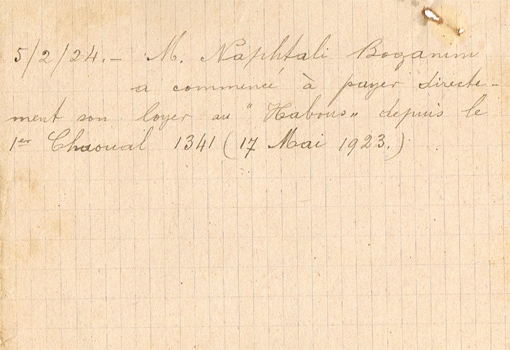 5/2/24. – M. Naphtali Boganim
a commencé à payer directe-
ment son loyer au "Habous" depuis le
1er Chaoual 1341 (17 Mai 1923.)